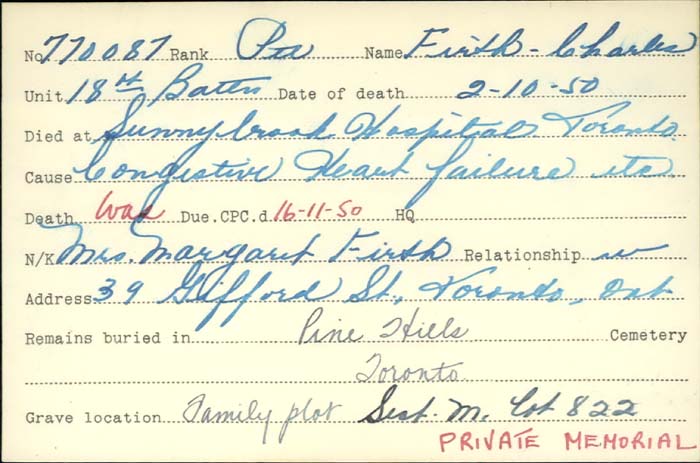 No 770087 Rank Pte Name Firth - Charles
Unit 18th Battn Date of death 2-10-50
Died at Sunnybrook Hospital Toronto.
Cause Congestive Heart failure etc
Death Was Due. CPC.d 16-11-50 HQ
N/K Mrs. Margaret Firth Relationship w
Address 39 Gifford St, Toronto, Ont
Remains buried in Pine Hills Cemetery
Toronto
Grave location Family plot Sect. M. Lot 822
PRIVATE MEMORIAL